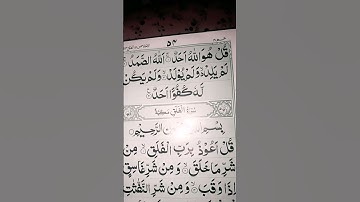 ٥٣
قُلْ هُوَ اللّٰهُ اَحَدٌ ۚ اَللّٰهُ الصَّمَدُ ۚ
لَمْ يَلِدْ ۙ وَلَمْ يُوْلَدْ ۙ وَلَمْ يَكُنْ
لَّهٗ كُفُوًا اَحَدٌ
سُوْرَةُ الْفَلَقِ مَكِّيَّةٌ
بِسْمِ الرَّحِيْمِ
قُلْ اَعُوْذُ بِرَبِّ الْفَلَقِ ۙ مِنْ
شَرِّ مَا خَلَقَ ۙ وَمِنْ شَرِّ غَاسِقٍ
اِذَا وَقَبَ ۙ وَمِنْ شَرِّ النَّفّٰثٰتِ